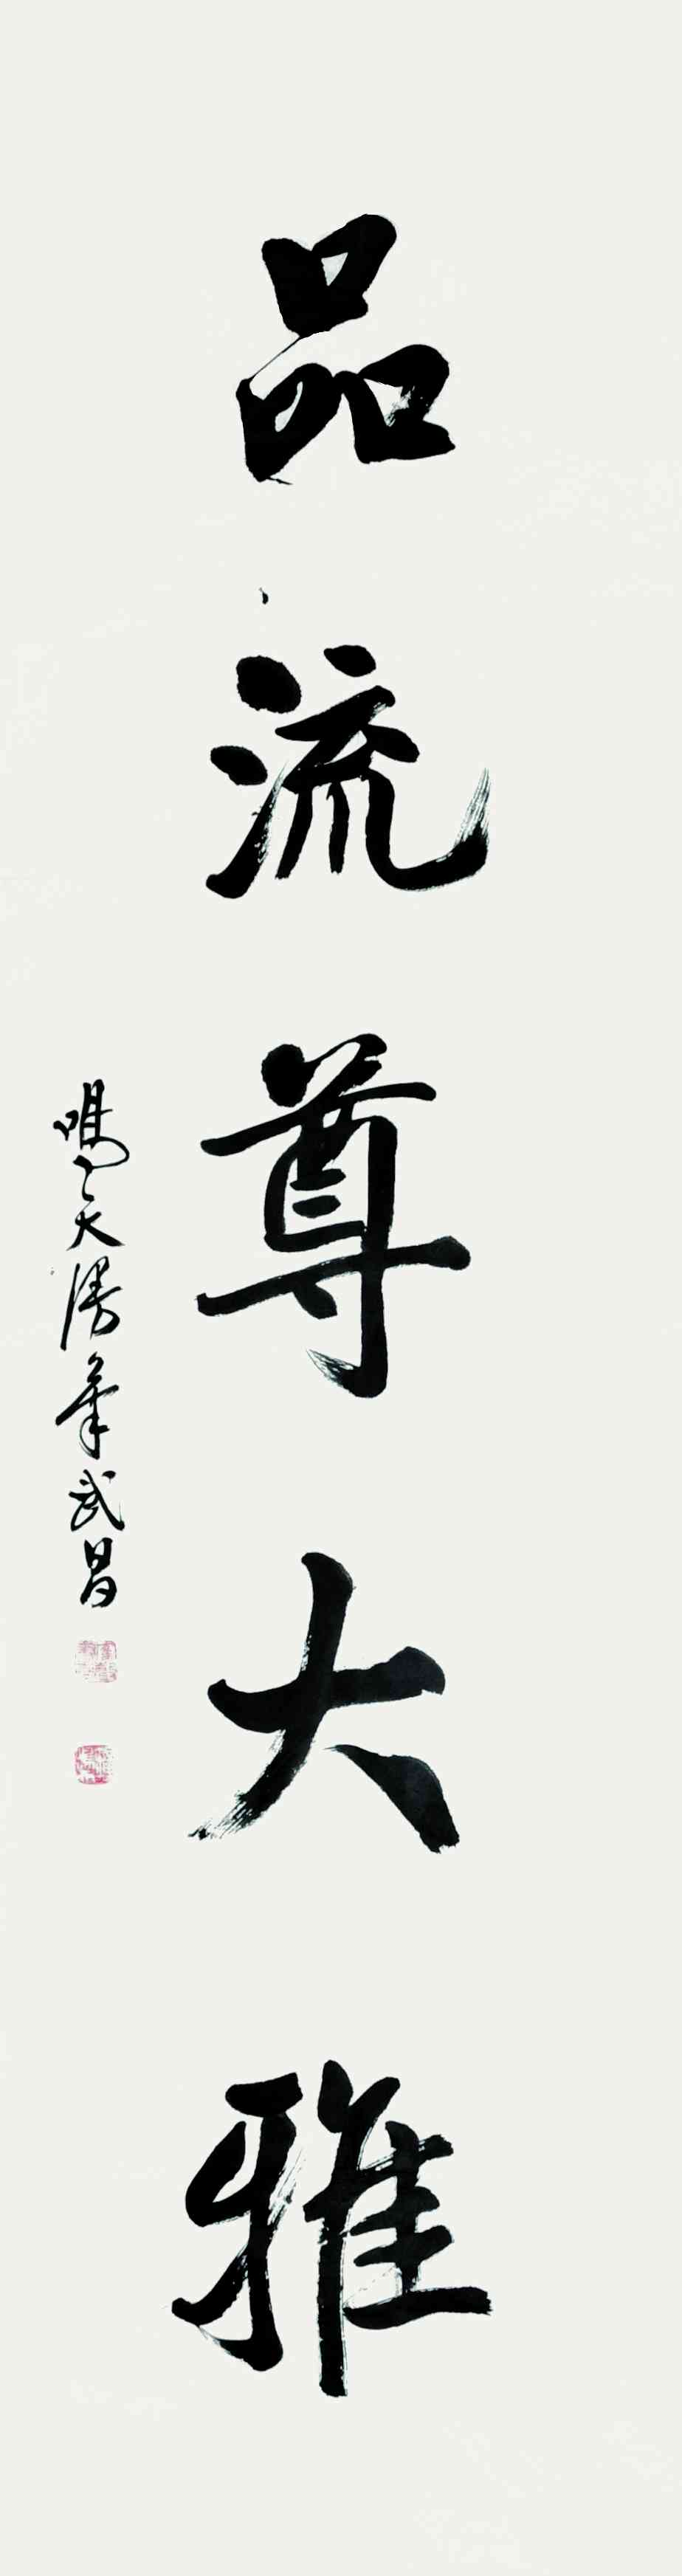 品流尊大雅
天漫笔武昌